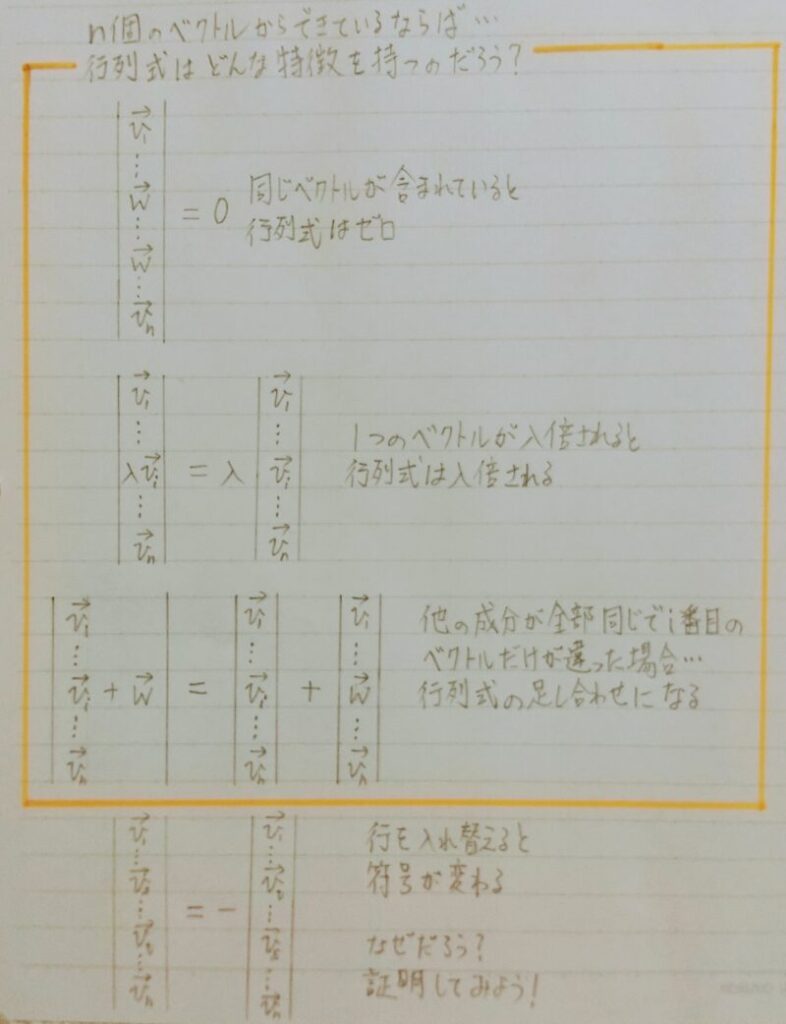 n個のベクトルからできているならば…
行列式はどんな特徴を持つのだろう?
|v⃗₁ … w⃗ … w⃗ … v⃗ₙ| = 0
同じベクトルが含まれていると
行列式はゼロ
|v⃗₁ … λv⃗ᵢ … v⃗ₙ| = λ |v⃗₁ … v⃗ᵢ … v⃗ₙ|
1つのベクトルがλ倍されると
行列式はλ倍される
|v⃗₁ … v⃗ᵢ + w⃗ … v⃗ₙ| = |v⃗₁ … v⃗ᵢ … v⃗ₙ| + |v⃗₁ … w⃗ … v⃗ₙ|
他の成分が全部同じでi番目の
ベクトルだけが違った場合…
行列式の足し合わせになる
|v⃗₁ … v⃗ₛ … v⃗ₜ … v⃗ₙ| = − |v⃗₁ … v⃗ₜ … v⃗ₛ … v⃗ₙ|
行を入れ替えると
符号が変わる
なぜだろう?
証明してみよう!